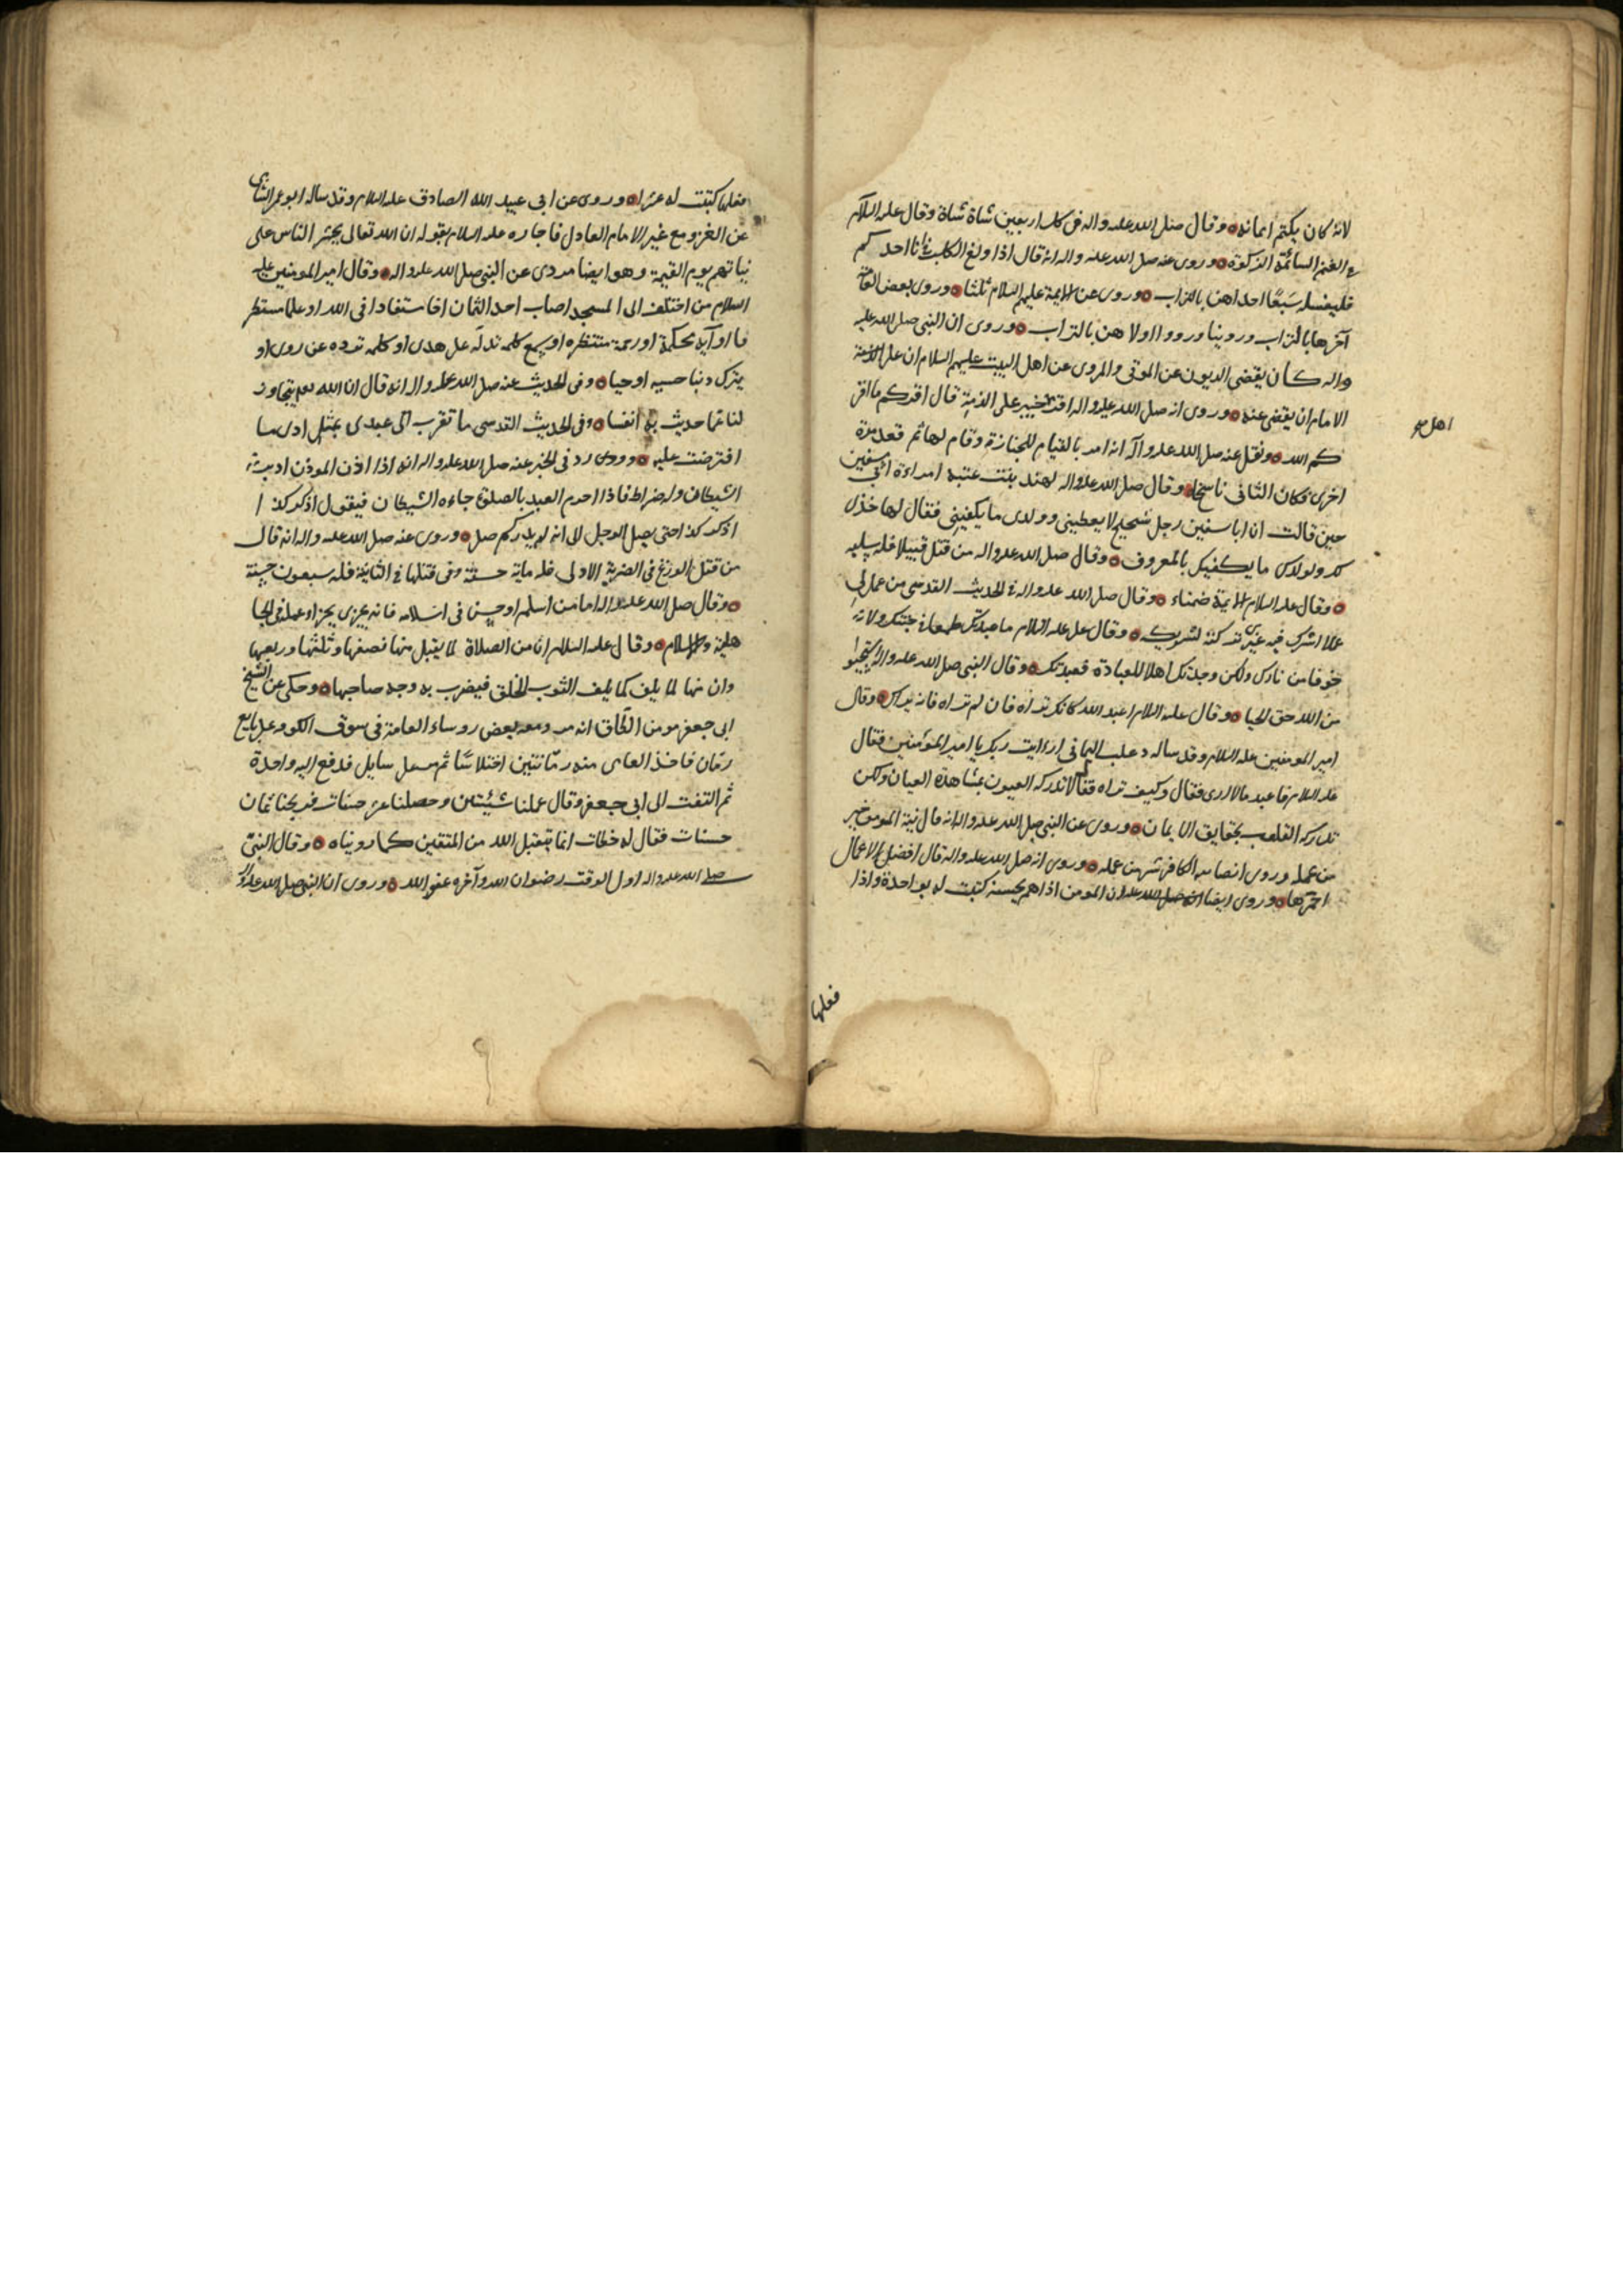 لانه كان يكتم ايمانه وقال صلى الله عليه واله فى كل اربعين شاة شاة وقال عليه السلام
فى الغنم السائمة الزكوة وروى عنه صلى الله عليه واله انه قال اذا ولغ الكلب فى انا احدكم
فليغسله سبعا احداهن بالتراب وروى عن الايمة عليهم السلام ثلثا وروى بعض العامة
آخرها بالتراب وروينا ورووا اولاهن بالتراب وروى ان النبى صلى الله عليه
واله كان يقضى الديون عن الموتى والمروى عن اهل البيت عليهم السلام ان على
الامام ان يقضى عنه وروى انه صلى الله عليه واله اقر خيبر على الذمة قال اقركم ما اقر
اهل
كم الله ونقل عنه صلى الله عليه وآله انه امر بالقيام للجنازة وقام لها ثم قعد مرة
اخرى فكان الثانى ناسخا وقال صلى الله عليه واله لهند بنت عتبه امراءة ابى سفين
حين قالت ان ابا سفين رجل شحيح لا يعطينى وولدى ما يكفينى فقال لها خذى
لك ولولدك ما يكفيك بالمعروف وقال صلى الله عليه واله من قتل قتيلا فله سلبه
وقال عليه السلام الايمة ضمناء وقال صلى الله عليه واله فى الحديث القدسى من عمل لى
عملا اشرك فيه غيرى تركته لشريكه وقال على عليه السلام ما عبدتك طمعا فى جنتك ولا
خوفا من نارك ولكن وجدتك اهلا للعبادة فعبدتك وقال النبى صلى الله عليه واله استحيوا
من الله حق الحيا وقال عليه السلام اعبد الله كانك تراه فان لم تراه فانه يراك وقال
امير المومنين عليه السلام وقد ساله دعلب اليمانى ارءايت ربك يا امير المومنين فقال
عليه السلام فاعبد ما لا ارى فقال وكيف تراه فقال لا تدركه العيون بمشاهدة العيان ولكن
تدركه القلوب بحقايق الايمان وروى عن النبى صلى الله عليه واله انه قال نية المومن خير
من عمله وروى ان نية الكافر شر من عمله وروى انه صلى الله عليه واله قال افضل الاعمال
احمزها وروى ايضا ان المومن اذا هم بحسنة كتبت له بواحدة واذا
فعلها
فعلها كتبت له عشرا وروى عن ابى عبيد الله الصادق عليه السلام وقد ساله ابو عمر الشامى
عن الغزو مع غير الامام العادل فاجابه عليه السلام بقوله ان الله تعالى يحشر الناس على
نياتهم يوم القيمة وهو ايضا مروى عن النبى صلى الله عليه واله وقال امير المومنين عليه
السلام من اختلف الى المسجد اصاب احد الثمان اخا مستفادا فى الله او علما مستطر
فا او آية محكمة او رحمة منتظره او يسمع كلمه تدله على هدى او كلمه ترده عن ردى او
يترك ذنبا خشيه او حيا وفى الحديث عنه صلى الله عليه واله انه قال ان الله تعالى يتجاوز
لنا عما حديث به انفسا وفى الحديث القدسى ما تقرب الى عبدى بمثل اداء ما
افترضت عليه وورد فى الخبر عنه صلى الله عليه واله انه اذا اذن الموذن ادبر
الشيطان وله ضراط فاذا احرم العبد بالصلوة جاءه الشيطان فيقول اذكر كذا
اذكر كذا حتى يصل الرجل الى انه لم يدر كم صلى وروى عنه صلى الله عليه واله انه قال
من قتل الوزغ فى الضربة الاولى فله ماية حسنة وفى قتلها فى الثانية فله سبعون حسنة
وقال صلى الله عليه واله اما من اسلم او حسن فى اسلامه فانه يجزى بجزاء عمله فى الجا
هلية والاسلام وقال عليه السلام ان من الصلاة لما يقبل منها نصفها وثلثها وربعها
وان منها لما يلف كما يلف الثوب الخلق فيضرب به وجه صاحبها وحكى عن الشيخ
ابى جعفر مومن الطاق انه مر ومعه بعض روساء العامة فى سوق الكوفه على بايع
رمان فاخذ العامى منه رمانتين اختلاسا ثم مر على سايل فدفع اليه واحدة
ثم التفت الى ابى جعفر وقال عملنا سئيتين وحصلنا عشر حسنات فربحنا ثمان
حسنات فقال له خطات انما يتقبل الله من المتقين كما رويناه وقال النبى
صلى الله عليه واله اول الوقت رضوان الله وآخره عفو الله وروى ان النبى صلى الله عليه واله